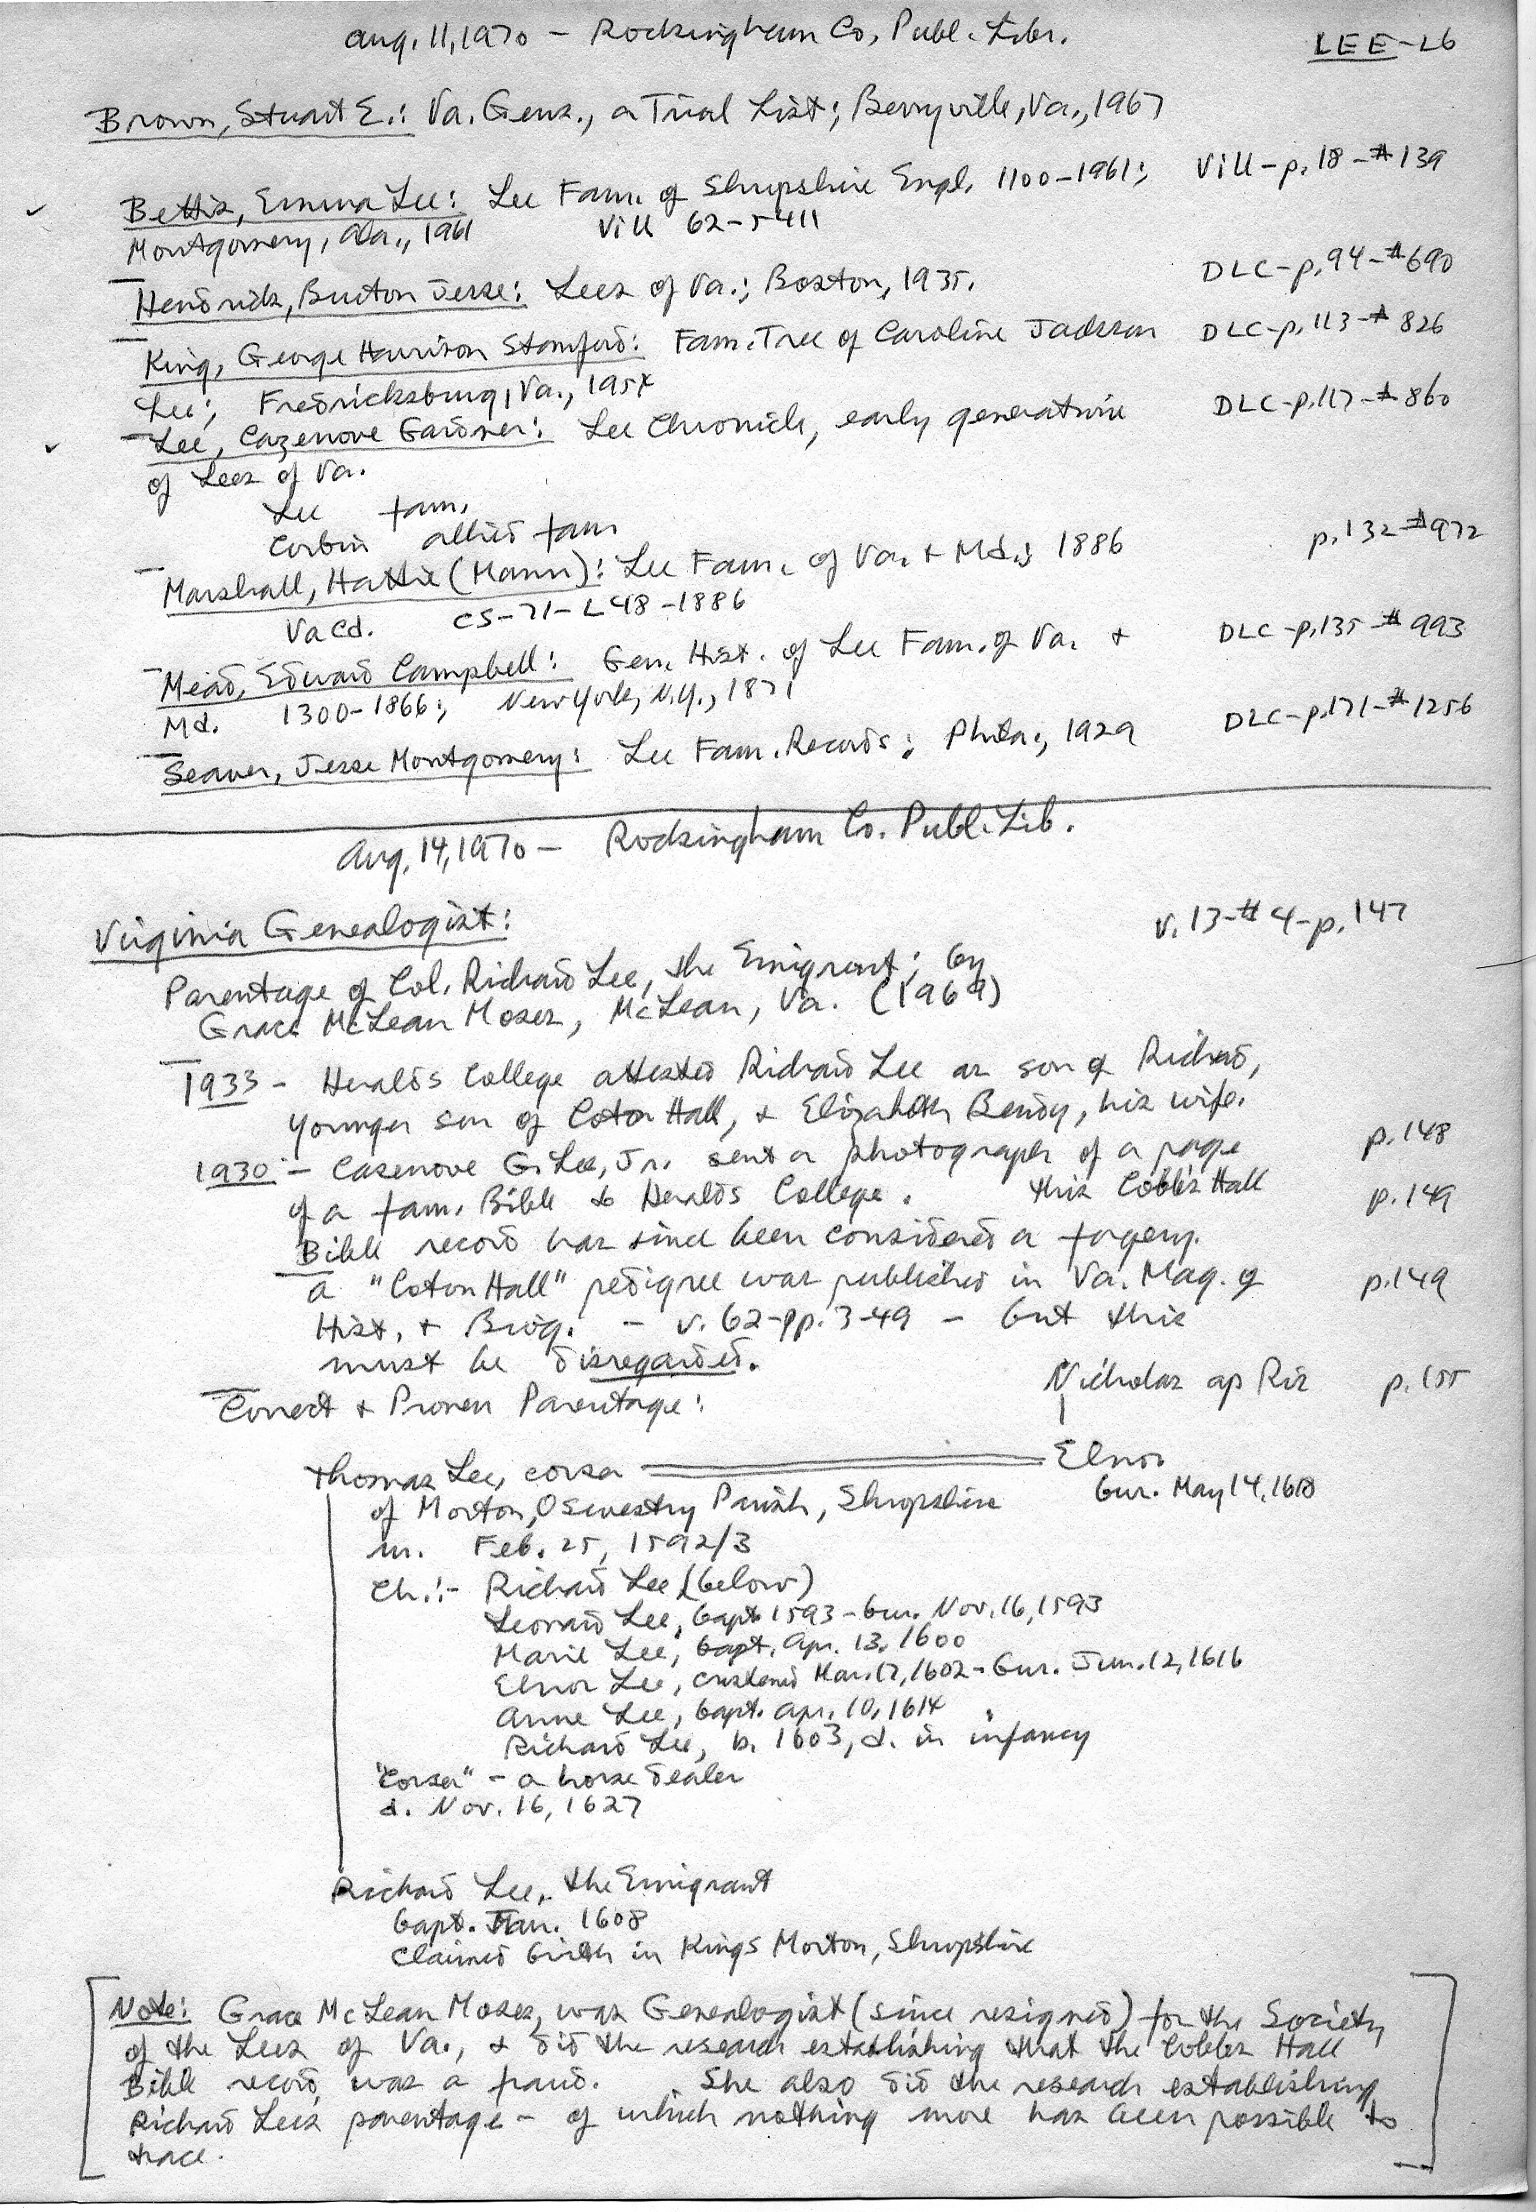 Aug. 11, 1970 — Rockingham Co. Publ. Libr. LEE-26
Brown, Stuart E.: Va. Gens., a Trial List; Berryville, Va., 1967
Bettis, Emma Lee: Lee Fam. of Shropshire Engl. 1100-1961; ViU-p. 18-#139
Montgomery, Ala., 1961 ViU 62-5411
Hendrick, Burton Jesse: Lees of Va.; Boston, 1935. DLC-p. 94-#690
King, George Harrison Stanford: Fam. Tree of Caroline Jackson DLC-p. 113-#826
Lee; Fredricksburg, Va., 1954
Lee, Cazenove Gardner: Lee Chronicle, early generations DLC-p. 117-#860
of Lees of Va.
Lee fam.
Corbin allied fam
Marshall, Hattie (Mann): Lee Fam. of Va. + Md.; 1886 p. 132 #972
Va Cd. CS-71-L48-1886
Mead, Edward Campbell: Gen. Hist. of Lee Fam. of Va. + DLC-p. 135-#993
Md. 1300-1866; New York, N.Y., 1871
Seaver, Jesse Montgomery: Lee Fam. Records; Phila., 1929 DLC-p. 171-#1256
Aug. 14, 1970 — Rockingham Co. Publ. Lib.
Virginia Genealogist: v. 13-#4-p. 147
Parentage of Col. Richard Lee, the Emigrant; by
Grace McLean Moses, McLean, Va. (1969)
1933 - Heralds College attested Richard Lee as son of Richard,
younger son of Coton Hall, + Elizabeth Bendy, his wife.
1930 - Casenove G. Lee, Jr. sent a photograph of a page p. 148
of a fam. Bible to Heralds College. This Cobbs Hall p. 149
Bible record has since been considered a forgery.
A "Coton Hall" pedigree was published in Va. Mag. of p. 149
Hist. + Biog. - v. 62-pp. 3-49 - but this
must be disregarded.
Correct + Proven Parentage: Nicholas ap Ris p. 155
Thomas Lee, corser Elnor
of Morton, Oswestry Parish, Shropshire bur. May 14, 1618
m. Feb. 25, 1592/3
Ch.:- Richard Lee (below)
Leonard Lee, bapt 1593 - bur. Nov. 16, 1593
Marie Lee, bapt. Apr. 13, 1600
Elnor Lee, cristened Mar. 17, 1602 - bur. Jun. 12, 1616
Anne Lee, bapt. Apr. 10, 1614
Richard Lee, b. 1603, d. in infancy
"Corser" - a horse dealer
d. Nov. 16, 1627
Richard Lee, the Emigrant
bapt. Jan. 1608
Claimed birth in Kings Morton, Shropshire
Note: Grace McLean Moses, was Genealogist (since resigned) for the Society
of the Lees of Va., + did the research establishing that the Cobbs Hall
Bible record was a fraud. She also did the research establishing
Richard Lees parentage - of which nothing more has been possible to
trace.